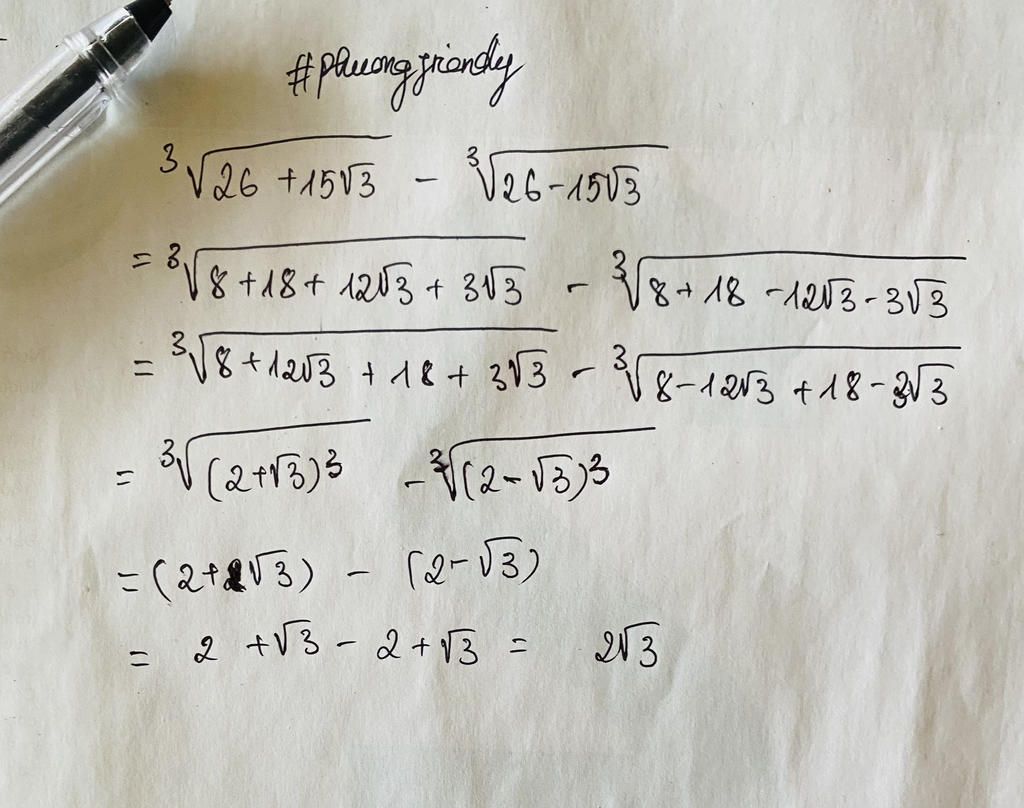 #phuongfriendly
∛(26 + 15√3) - ∛(26 - 15√3)
= ∛(8 + 18 + 12√3 + 3√3) - ∛(8 + 18 - 12√3 - 3√3)
= ∛(8 + 12√3 + 18 + 3√3) - ∛(8 - 12√3 + 18 - 3√3)
= ∛((2+√3)³) - ∛((2-√3)³)
= (2+√3) - (2-√3)
= 2 + √3 - 2 + √3 = 2√3